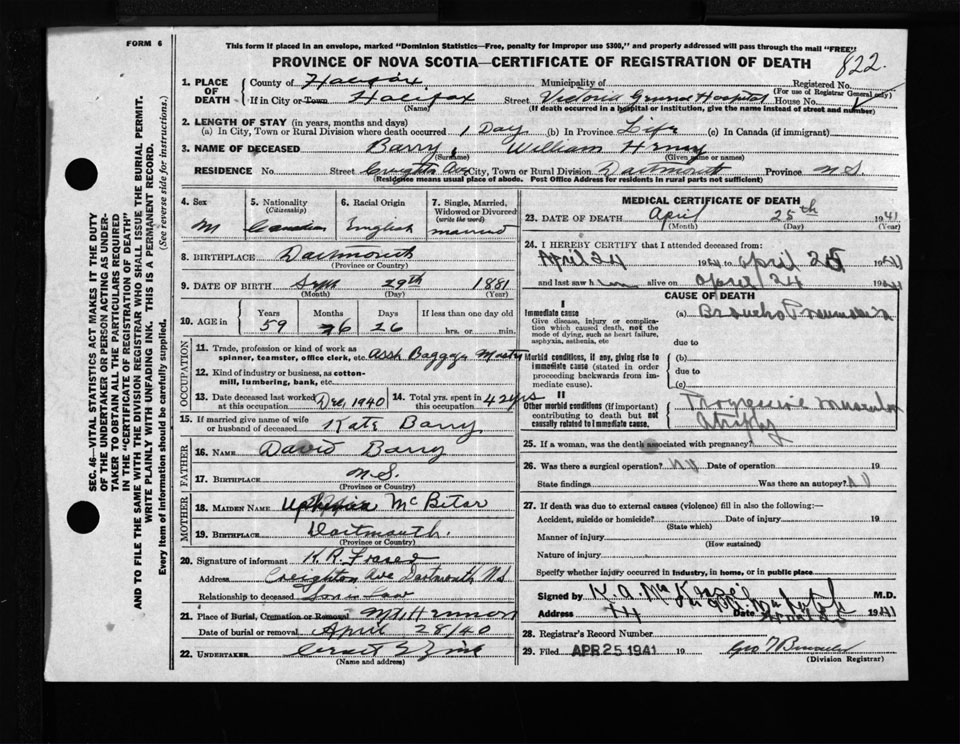 FORM 6
This form if placed in an envelope, marked "Dominion Statistics—Free, penalty for improper use $300," and properly addressed will pass through the mail "FREE"
PROVINCE OF NOVA SCOTIA—CERTIFICATE OF REGISTRATION OF DEATH
822
1. PLACE OF DEATH County of Halifax Municipality of Registered No.
(For use of Registrar General only)
If in City or Town Halifax Street Victoria General Hospital House No.
(Name) (If death occurred in a hospital or institution, give the name instead of street and number)
2. LENGTH OF STAY (in years, months and days)
(a) In City, Town or Rural Division where death occurred 1 Day (b) In Province Life (c) In Canada (if immigrant)
3. NAME OF DECEASED Barry, William Henry
(Surname) (Given name or names)
RESIDENCE No. Street Creighton Ave City, Town or Rural Division Dartmouth Province N.S.
(Residence means usual place of abode. Post Office Address for residents in rural parts not sufficient)
4. Sex M
5. Nationality (Citizenship) Canadian
6. Racial Origin English
7. Single, Married, Widowed or Divorced (write the word) married
8. BIRTHPLACE Dartmouth
(Province or Country)
9. DATE OF BIRTH Sept 29th 1881
(Month) (Day) (Year)
10. AGE in Years Months Days If less than one day old
59 6 26 hrs. or min.
OCCUPATION
11. Trade, profession or kind of work as spinner, teamster, office clerk, etc. Asst Baggage Master
12. Kind of industry or business, as cotton-mill, lumbering, bank, etc.
13. Date deceased last worked at this occupation Dec, 1940 14. Total yrs. spent in this occupation 42 yrs
15. If married give name of wife or husband of deceased Kate Barry
FATHER
16. NAME David Barry
17. BIRTHPLACE N.S.
(Province or Country)
MOTHER
18. MAIDEN NAME
19. BIRTHPLACE Dartmouth.
(Province or Country)
20. Signature of informant K. R. Fraser
Address Creighton Ave Dartmouth N.S
Relationship to deceased Son in Law
21. Place of Burial, Cremation or Removal Mt Hermon
Date of burial or removal April 28/40
22. UNDERTAKER
(Name and address)
MEDICAL CERTIFICATE OF DEATH
23. DATE OF DEATH April 25th 1941
(Month) (Day) (Year)
24. I HEREBY CERTIFY that I attended deceased from:
April 24 1941 to April 25 1941
and last saw him alive on April 24 1941
CAUSE OF DEATH
I
Immediate cause (a) Broncho Pneumonia
Give disease, injury or complication which caused death, not the mode of dying, such as heart failure, asphyxia, asthenia, etc
due to
Morbid conditions, if any, giving rise to immediate cause (stated in order proceeding backwards from immediate cause).
(b)
due to
(c)
II
Other morbid conditions (if important) contributing to death but not causally related to immediate cause.
Progressive muscular Atrophy
25. If a woman, was the death associated with pregnancy?
26. Was there a surgical operation? no Date of operation 19
State findings Was there an autopsy? no
27. If death was due to external causes (violence) fill in also the following:—
Accident, suicide or homicide? Date of injury 19
(State which)
Manner of injury
(How sustained)
Nature of injury
Specify whether injury occurred in industry, in home, or in public place
Signed by M.D.
Address Date 1941
28. Registrar's Record Number
29. Filed APR 25 1941 19
(Division Registrar)
SEC. 46—VITAL STATISTICS ACT MAKES IT THE DUTY
OF THE UNDERTAKER OR PERSON ACTING AS UNDERTAKER TO OBTAIN ALL THE PARTICULARS REQUIRED
IN THE "CERTIFICATE OF REGISTRATION OF DEATH"
AND TO FILE THE SAME WITH THE DIVISION REGISTRAR WHO SHALL ISSUE THE BURIAL PERMIT.
WRITE PLAINLY WITH UNFADING INK. THIS IS A PERMANENT RECORD.
Every item of information should be carefully supplied. (See reverse side for instructions.)